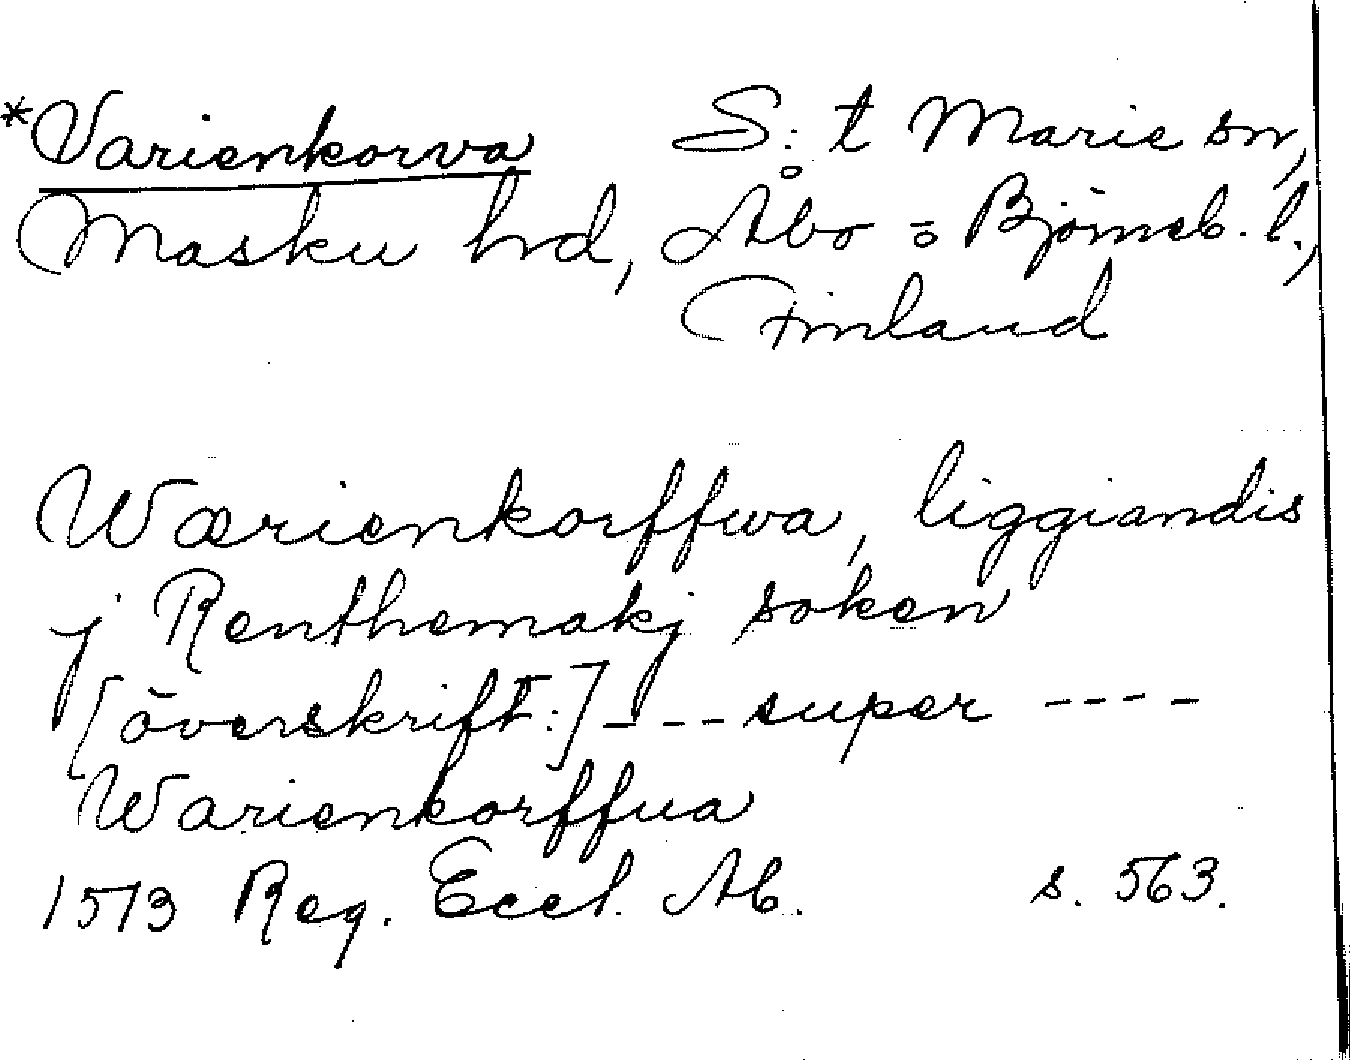 *Varienkorva S:t Marie sn,
Masku hd, Åbo = Björneb. l.,
Finland
Wærienkorffwa, liggiandis
j Renthemakj soken
[överskrift:] --- super ----
Warienkorffua
1513 Reg. Eccl. Ab. s. 563.